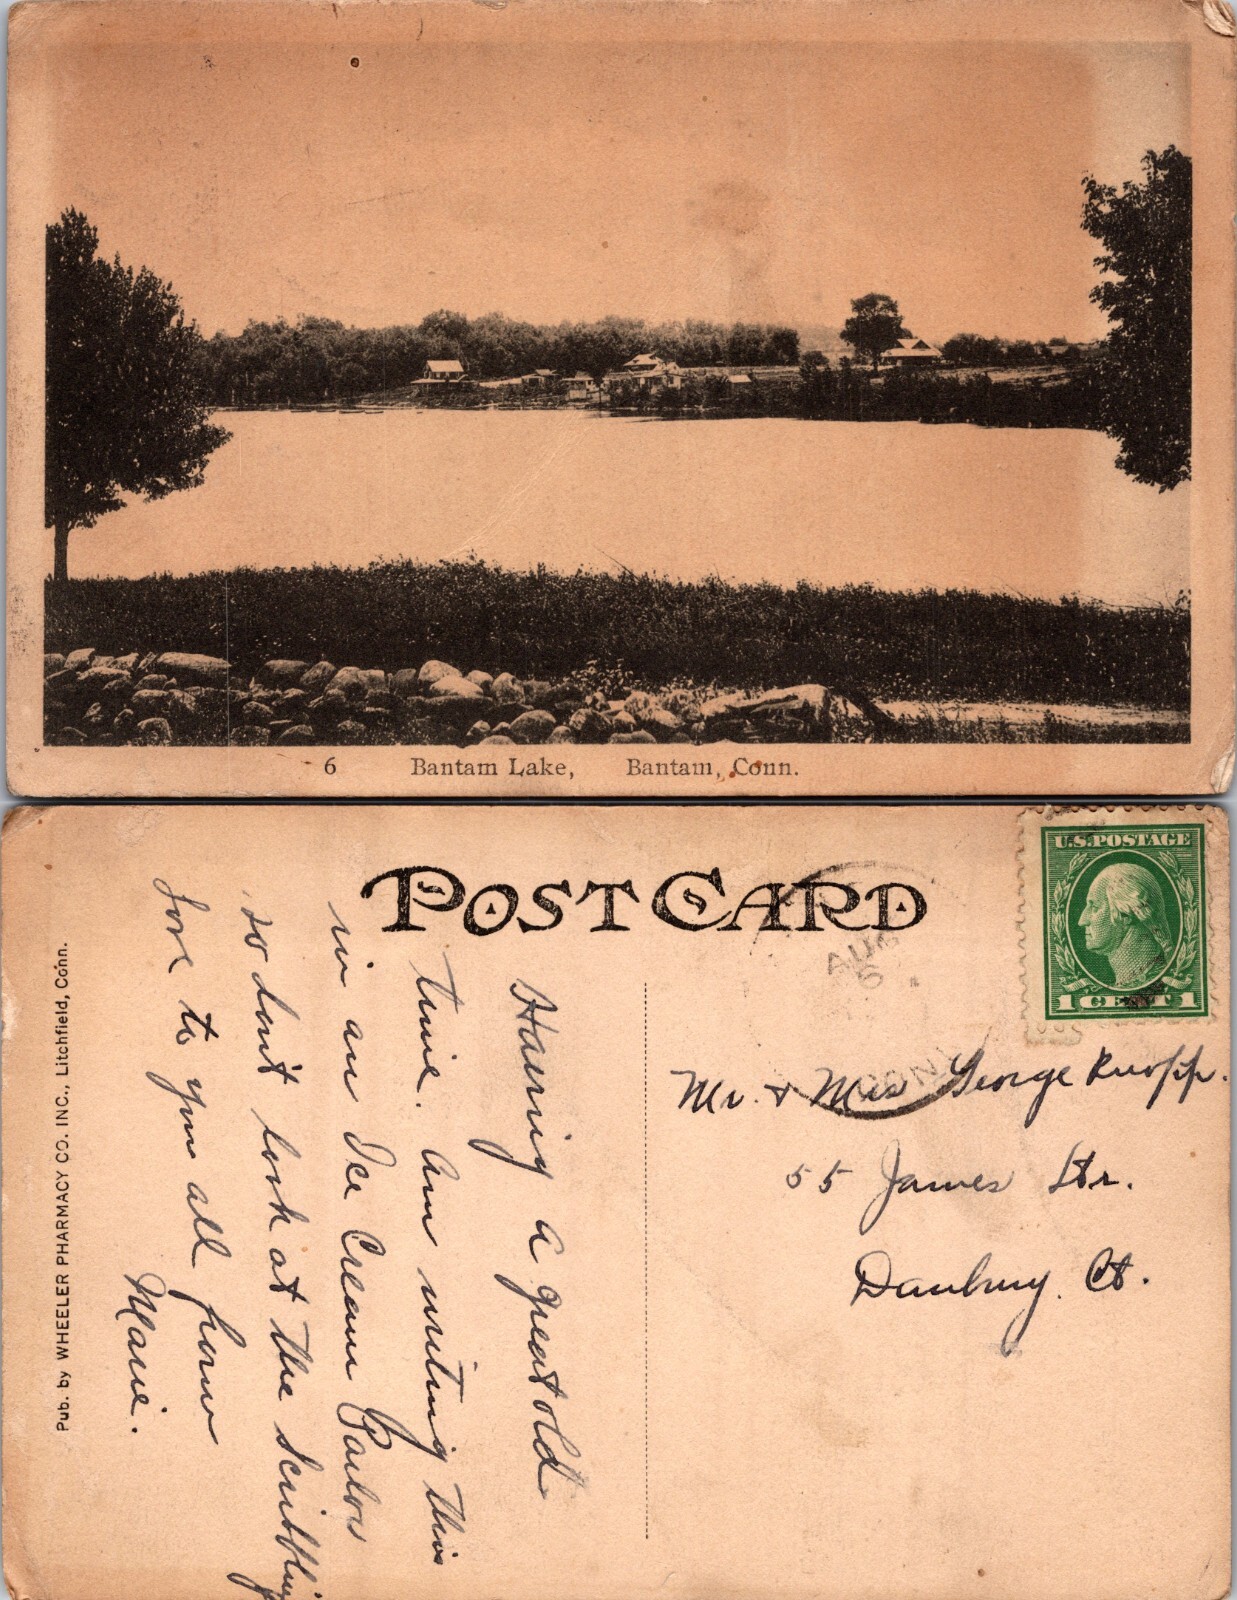 6 Bantam Lake, Bantam, Conn.
POST CARD
U.S. POSTAGE
1 CENT 1
AUG
6
CONN
Pub. by WHEELER PHARMACY CO. INC., Litchfield, Conn.
Having a great old
time. Am writing this
in an Ice Cream Parlor
so don't look at the scribbling
Love to you all from
Marie.
Mr. & Mrs George Ruopp.
55 James Str.
Danbury. Ct.